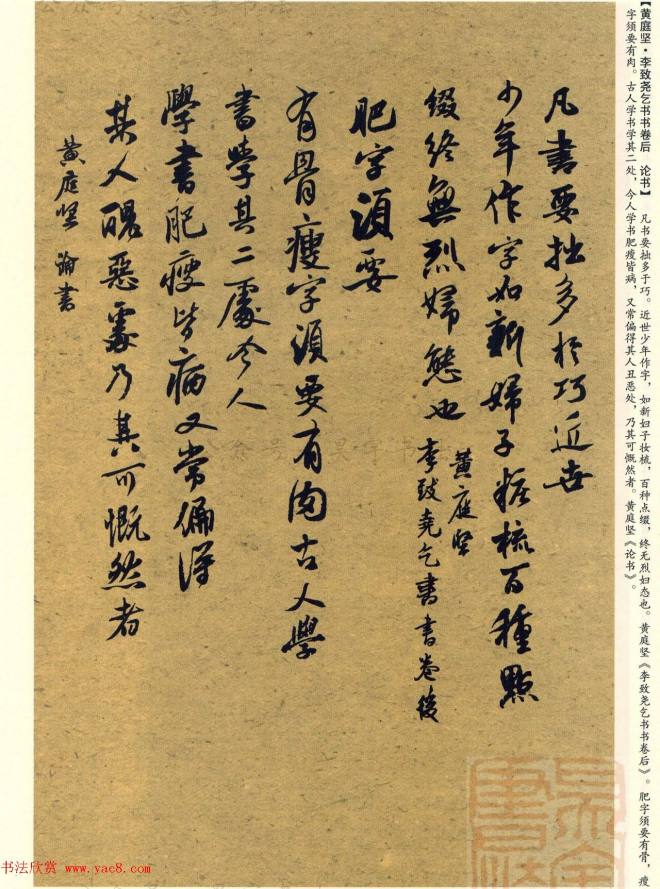 【黄庭坚·李致尧乞书书卷后 论书】 凡书要拙多于巧。近世少年作字，如新妇子妆梳，百种点缀，终无烈妇态也。黄庭坚《李致尧乞书书卷后》。 肥字须要有骨，瘦
字须要有肉。古人学书学其二处，今人学书肥瘦皆病，又常偏得其人丑恶处，乃其可慨然者。黄庭坚《论书》。
凡書要拙多於巧近世
少年作字如新婦子粧梳百種點
綴終無烈婦態也
黄庭坚
李致堯乞書書卷後
肥字須要
有骨瘦字須要有肉古人學
書學其二處今人
學書肥瘦皆病又常偏得
其人醜惡處乃其可慨然者
黄庭坚 論書
书法欣赏 www.yac8.com